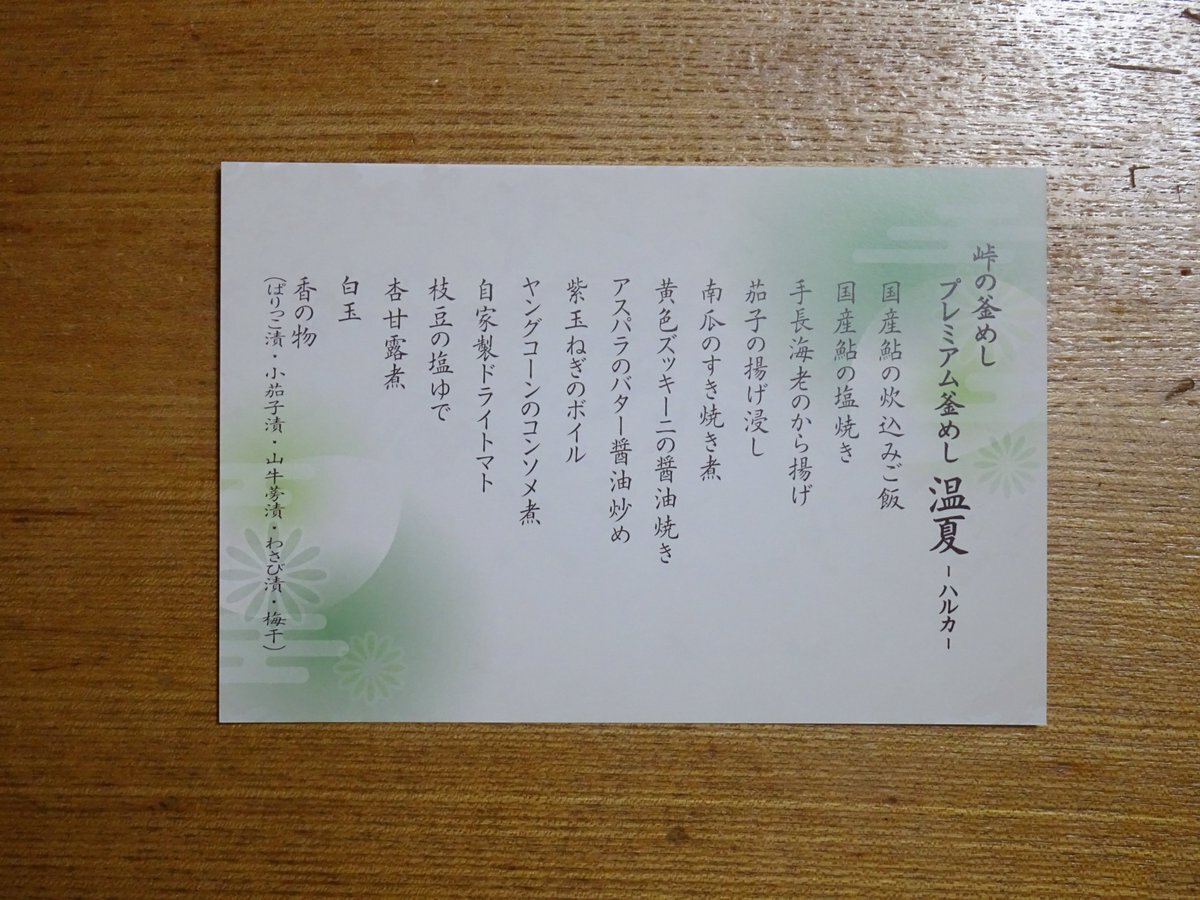 峠の釜めし
プレミアム釜めし 温夏 －ハルカ－
国産鮎の炊込みご飯
国産鮎の塩焼き
手長海老のから揚げ
茄子の揚げ浸し
南瓜のすき焼き煮
黄色ズッキーニの醤油焼き
アスパラのバター醤油炒め
紫玉ねぎのボイル
ヤングコーンのコンソメ煮
自家製ドライトマト
枝豆の塩ゆで
杏甘露煮
白玉
香の物
（ぱりっこ漬・小茄子漬・山牛蒡漬・わさび漬・梅干）